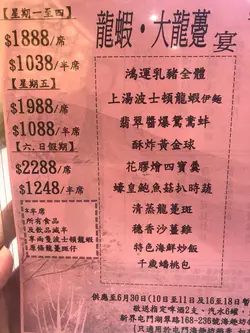 【星期一至四】
$1888/席
$1038/半席
【星期五】
$1988/席
$1088/半席
【六.日假期】
$2288/席
$1248/半席
*半席
所有食品
及飲品減半
龍蝦·大龍躉 宴
鴻運乳豬全體
上湯波士頓龍蝦伊麵
翡翠醬爆鴛鴦蚌
酥炸黃金球
花膠燴四寶羹
蠔皇鮑魚菇扒時蔬
清蒸龍躉斑
穗香沙薑雞
特色海鮮炒飯
千歲蟠桃包
供應至6月30日(10日至11日及16日至18日暫
敬送指定啤酒2支、汽水6罐、
新界屯門湖翠路168-236號海趣坊